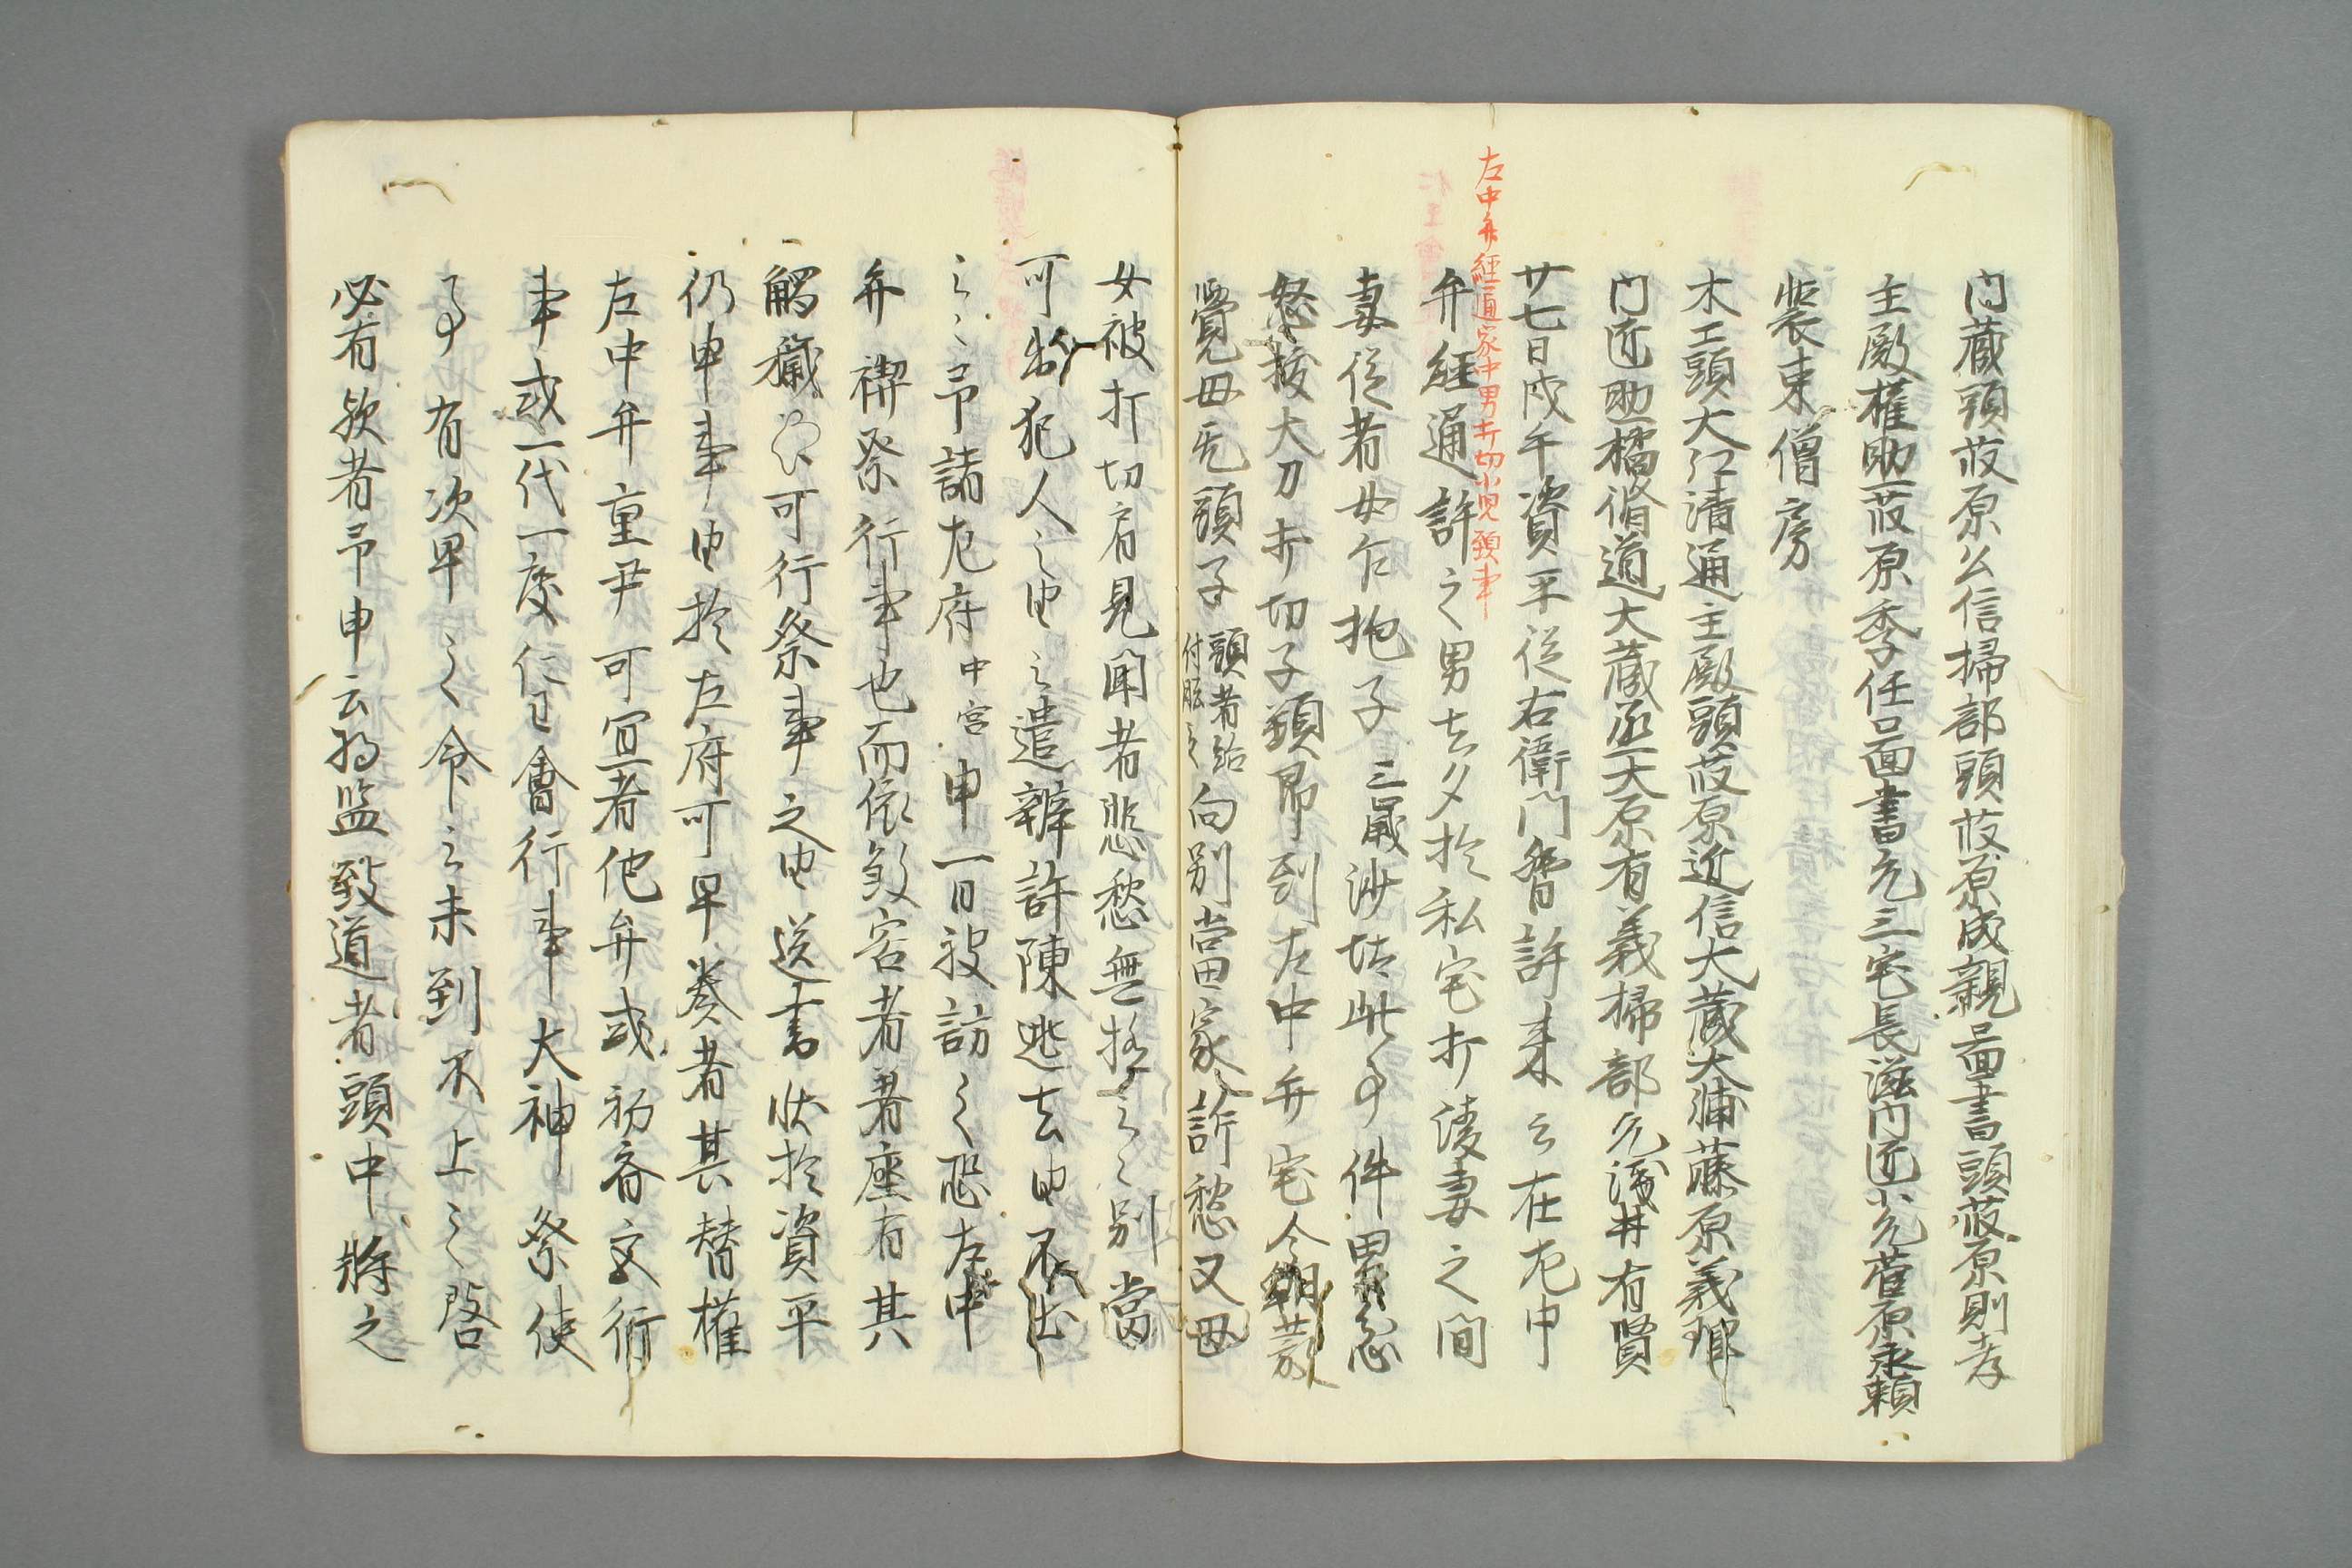 内蔵頭藤原公信掃部頭藤原成親畾書頭藤原則孝
主殿権助藤原季任畾書允三宅長滋内匠少允菅原永頼
装束僧房
木工頭大江清通主殿頭藤原近信大蔵大浦藤原義理
内匠助橘脩道大蔵丞大原有義掃部允浅井有賢
左中弁経通家中男打切小児頸事
廿七日戊午資平従右衛門督許来云在左中
弁経通許之男去夕於私宅打凌妻之間
妻従者女乍抱子三歳沙汰此事件男忽
怒抜大刀打切子頸即到左中弁宅今朝
覚母无頭子頭者給付肱云々向別当家訴愁又母
女被打切肩見聞者悲愁無極云々別當
可出犯人之由之遣辨許陳逃去由不出
云々予詣左府中宮申一日被訪之恐左中
弁禊祭行事也而依致害者著座有其
觸穢 可行祭事之由送書状於資平
仍申事由於左府可早奏者其替権
左中弁重尹可宜者他弁或初斎宮行
事或一代一度仁王會行事大神祭使
事有次早之令云未到不上之啓
必有欤者予申云將監致道者頭中將之